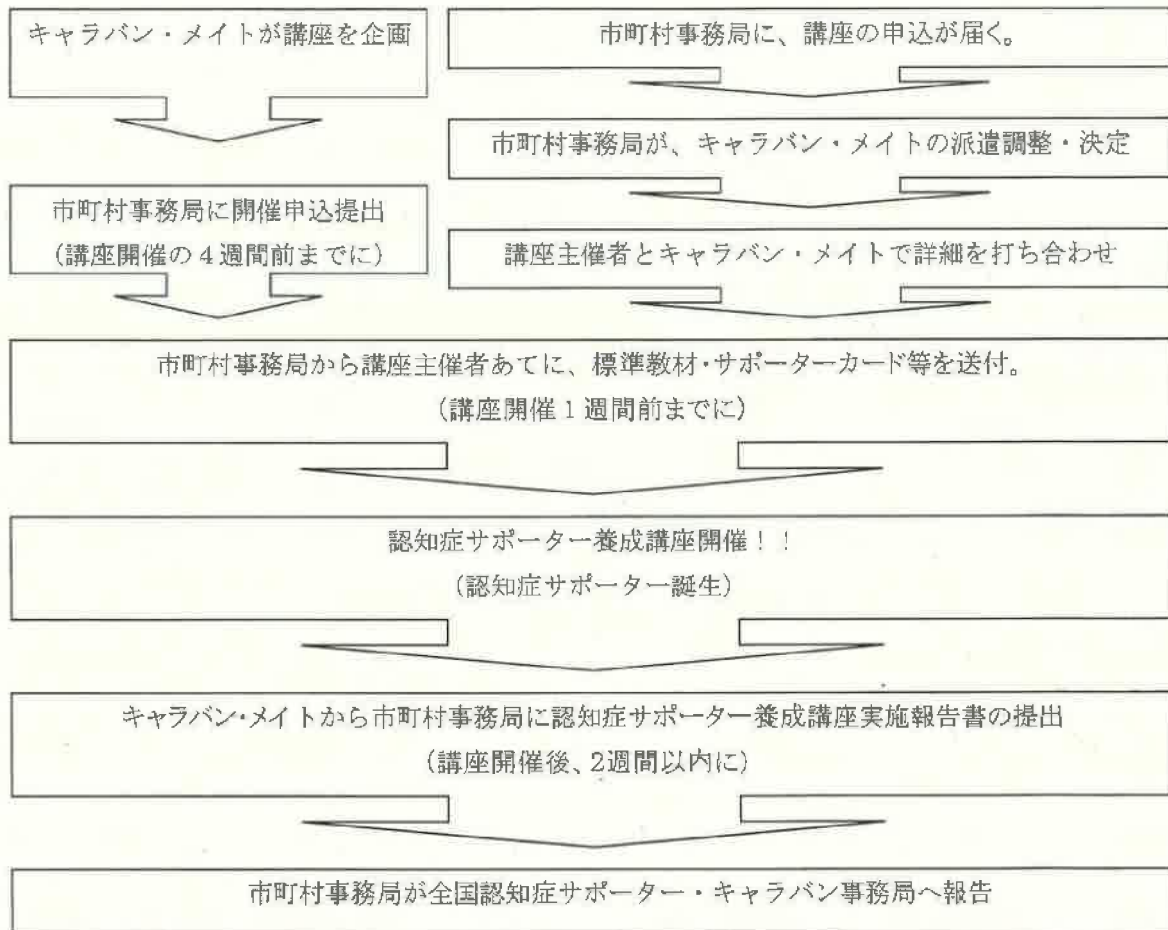 キャラバン・メイトが講座を企画
市町村事務局に開催申込提出
(講座開催の4週間前までに)
市町村事務局に、講座の申込が届く。
市町村事務局が、キャラバン・メイトの派遣調整・決定
講座主催者とキャラバン・メイトで詳細を打ち合わせ
市町村事務局から講座主催者あてに、標準教材・サポーターカード等を送付。
(講座開催1週間前までに)
認知症サポーター養成講座開催！！
(認知症サポーター誕生)
キャラバン・メイトから市町村事務局に認知症サポーター養成講座実施報告書の提出
(講座開催後、2週間以内に)
市町村事務局が全国認知症サポーター・キャラバン事務局へ報告